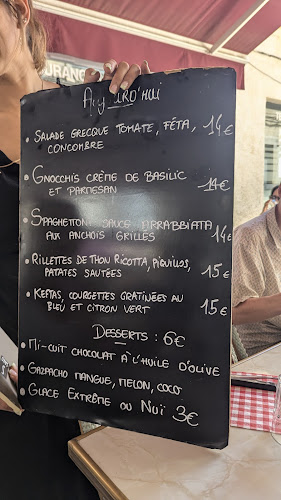 ORANG
Auj URD'HUI
• SALADE GRECQUE TOMATE, FÉTA, 14€
CONCOMBRE
• GNOCCHIS CRÈME DE BASILIC
ET PARMESAN 14€
• SPAGHETTONI SAUCE ARRABBIATA
AUX ANCHOIS GRILLÉS 14€
• RILLETTES DE THON RICOTTA, PIQUILLOS,
PATATES SAUTÉES 15€
• KEFTAS, COURGETTES GRATINÉES AU
BLEU ET CITRON VERT 15€
DESSERTS : 6€
• MI-CUIT CHOCOLAT À L'HUILE D'OLIVE
• GAZPACHO MANGUE, MELON, COCO
• GLACE EXTRÊME OU NUII 3€